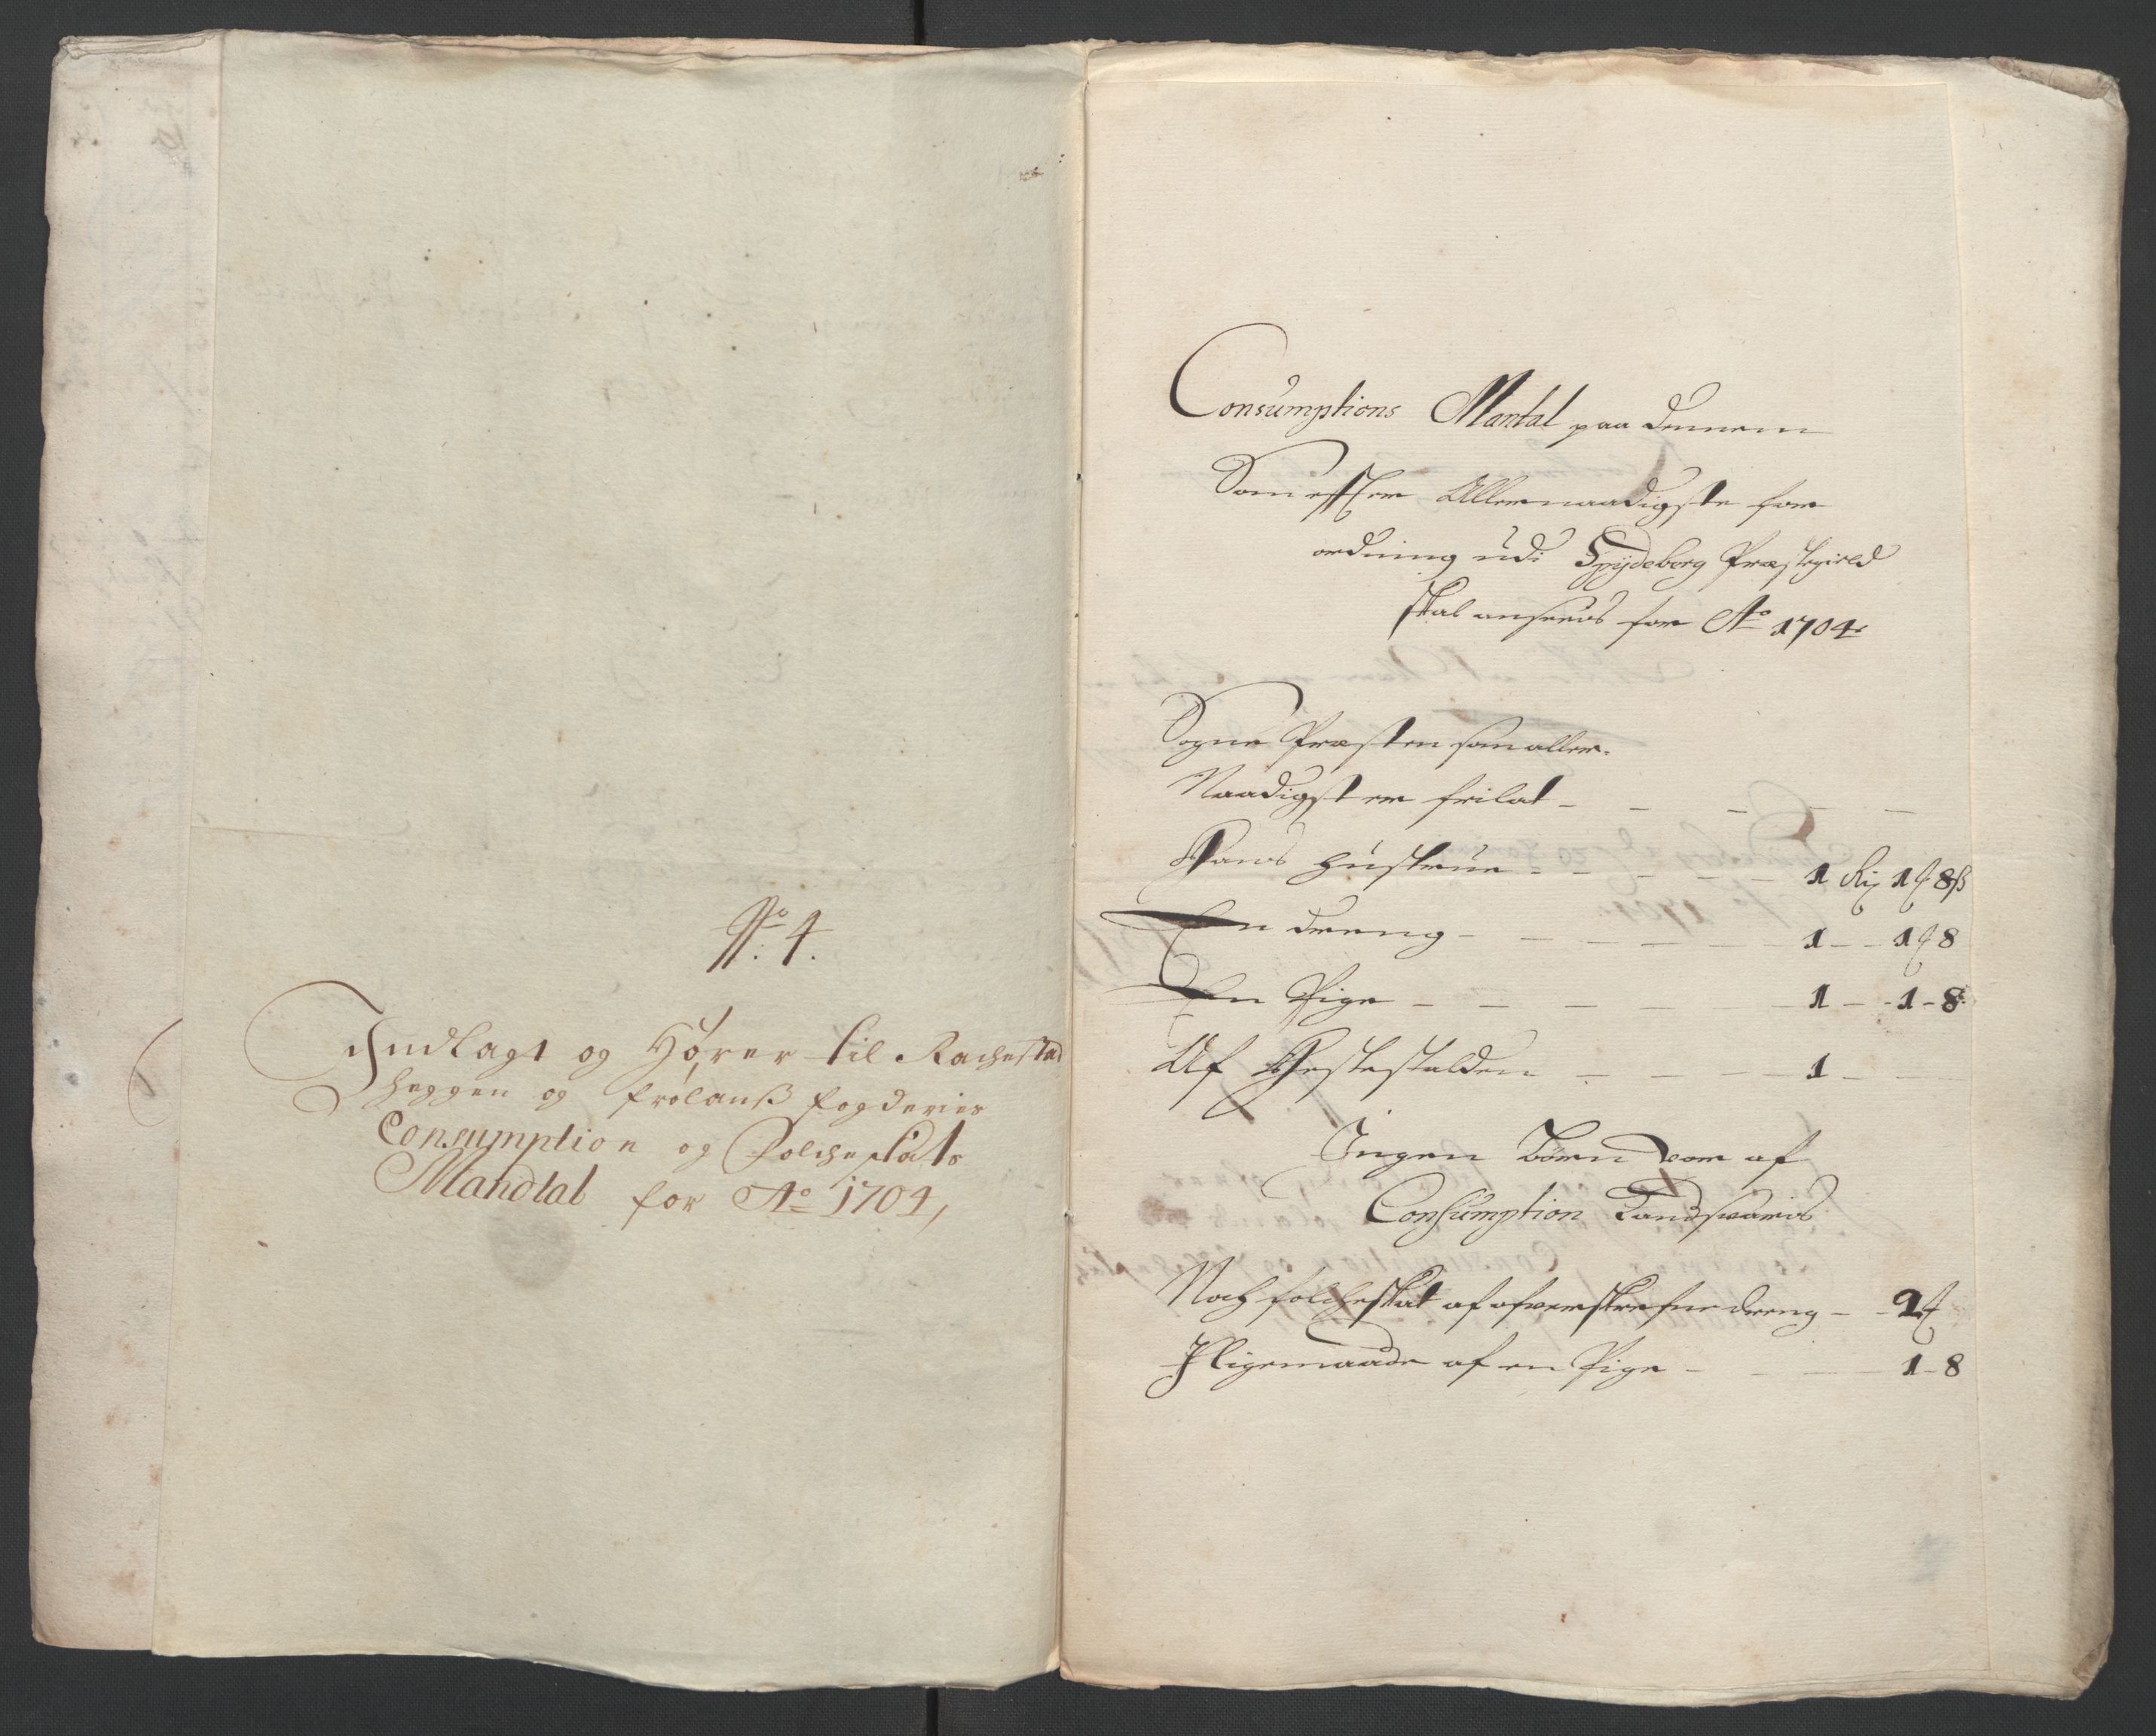 No. 4.
Indlagt og Hører til Rachestad
heggen og frølanß fogderies
Consumption og Folcheskats
Mandtal for Ao 1704,
Consumptions Mantal paa dennem
Som effter Allernaadigste for
ordning udi Spydeborg Præstegield
skal ansees for Ao 1704
Sogne Præsten som aller-
Naadigst er frilat - - - - -
Hans Hustrue - - - - - 1 Rix 1 ʠ 8 ß
En dreng - - - - - - 1 - - 1 ʠ 8
En Pige - - - - - 1 - - 1 - 8
Af Hestestalden - - - - 1 - -
Ingen Børn som af
Consumption
Noch folcheskat af ofverskrefne dreng - - 2 ʠ
Iligemaade af en Pige - - - - 1 - 8